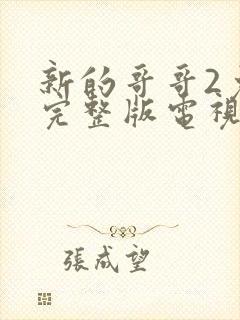 新的哥哥2
完整版電視
張成望